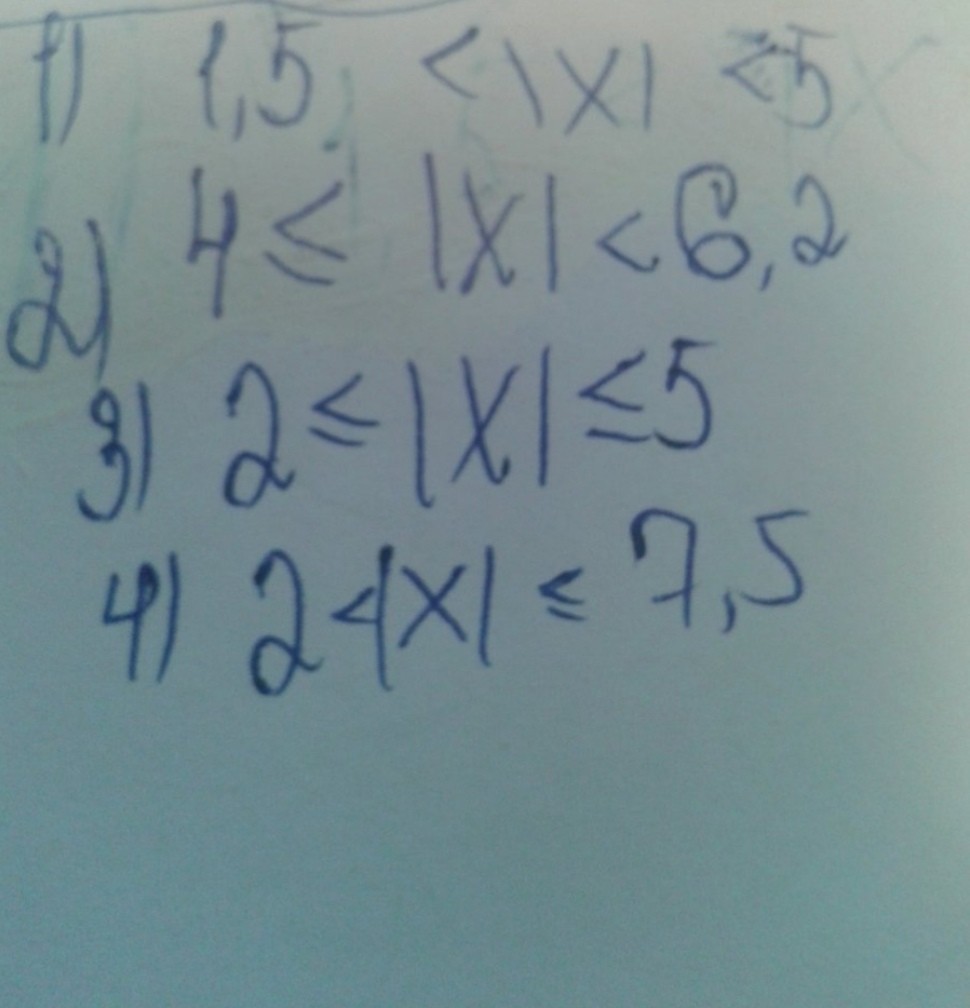 1) 1,5 < |X| ≤ 5
2) 4 ≤ |X| < 6,2
3) 2 ≤ |X| ≤ 5
4) 2 < |X| ≤ 7,5